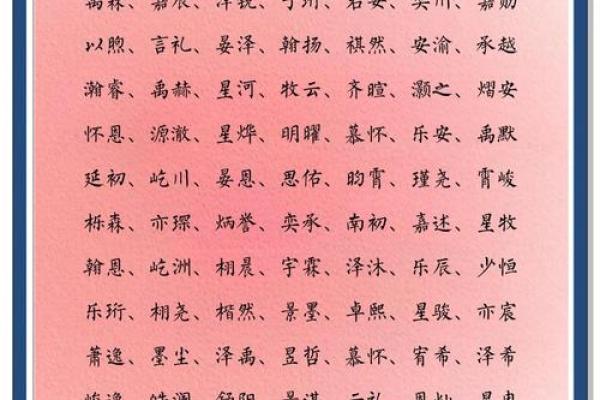 禹森、嘉辰、泽锐、于州、君安、奕川、嘉勋
以煦、言礼、晏泽、翰扬、祺然、安渝、承越
瀚睿、禹赫、星河、牧云、齐暄、灏之、熠安
怀恩、源澈、星烨、明曜、慕怀、乐安、禹默
延初、屹川、晏恩、思佑、昀霄、瑾尧、霄峻
栎森、亦琛、炳誉、奕承、南初、嘉述、星牧
翰恩、屹洲、栩晨、宇霖、泽沐、乐辰、少恒
乐珩、栩尧、楷然、景墨、卓熙、星骏、亦宸
萧逸、墨尘、泽禹、昱哲、慕怀、宥希、泽希